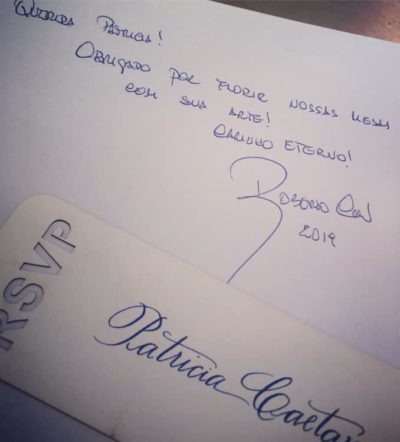 Querida Patricia!
Obrigado por florir nossas mesas
com sua arte!
Carinho eterno!
2019
RSVP
Patricia Caeta